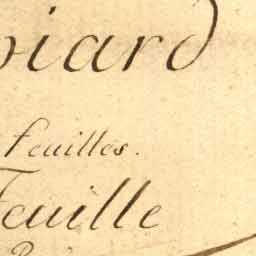 piard
feuilles.
Feuille